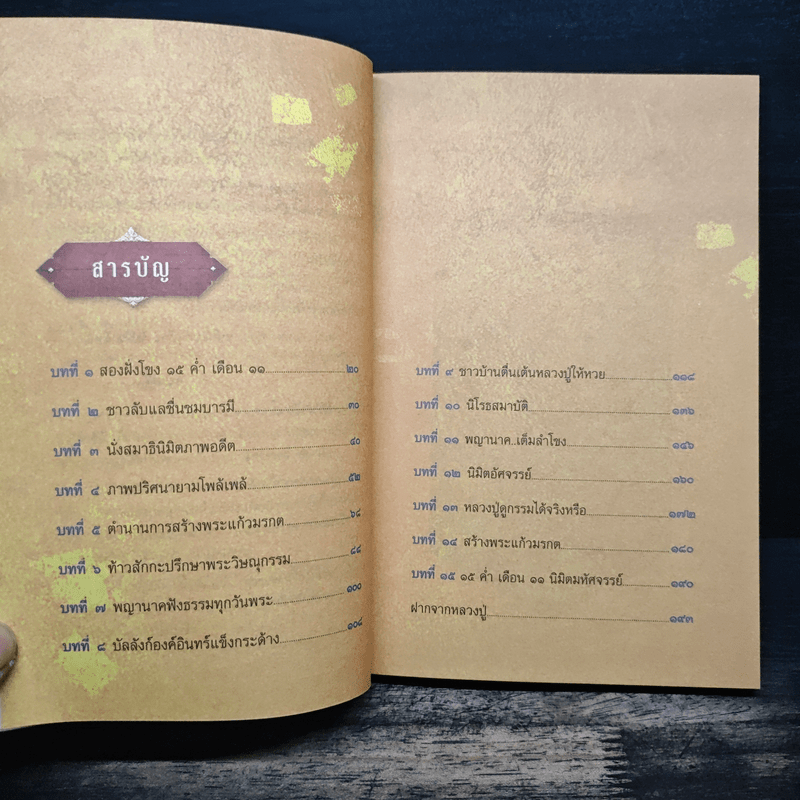 สารบัญ
บทที่ ๑ สองฝั่งโขง ๑๕ ค่ำ เดือน ๑๑ ๒๐
บทที่ ๒ ชาวลับแลชื่นชมบารมี ๓๐
บทที่ ๓ นั่งสมาธินิมิตภาพอดีต ๔๐
บทที่ ๔ ภาพปริศนายามโพล้เพล้ ๕๒
บทที่ ๕ ตำนานการสร้างพระแก้วมรกต ๖๘
บทที่ ๖ ท้าวสักกะปรึกษาพระวิษณุกรรม ๘๘
บทที่ ๗ พญานาคฟังธรรมทุกวันพระ ๑๐๐
บทที่ ๘ บัลลังก์องค์อินทร์แข็งกระด้าง ๑๐๘
บทที่ ๙ ชาวบ้านตื่นเต้นหลวงปู่ให้หวย
บทที่ ๑๐ นิโรธสมาบัติ ๑๓๖
บทที่ ๑๑ พญานาค..เต็มลำโขง ๑๔๖
บทที่ ๑๒ นิมิตอัศจรรย์ ๑๖๐
บทที่ ๑๓ หลวงปู่ดูกรรมได้จริงหรือ ๑๗๒
บทที่ ๑๔ สร้างพระแก้วมรกต ๑๘๐
บทที่ ๑๕ ๑๕ ค่ำ เดือน ๑๑ นิมิตมหัศจรรย์ ๑๙๐
ฝากจากหลวงปู่ ๑๙๓